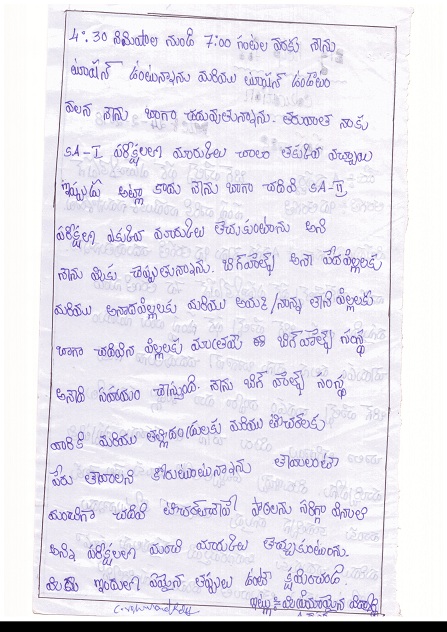 4.30 నిమిషాల నుండి 7:00 గంటల వరకు నాను
ట్యూషన్ ఉంటున్నాను మరియు ట్యూషన్ ఉండటం
వలన నాను బాగా చదువుతున్నాను. తరువాత నాకు
SA-I పరీక్షలలో మార్కులు చాలా తక్కువ వచ్చాయి
ఇప్పుడు అట్లా కాదు నాను బాగా చదివి SA-II
పరీక్షలలో ఎక్కువ మార్కులు తెచ్చుకుంటాను అని
నాను మీకు చెప్పుతున్నాను. బిగ్ హెల్ప్ అనా పేదపిల్లలకు
మరియు అనాదపిల్లలకు మరియు అమ్మ/నాన్న లాని పిల్లలకు
బాగా చదివిన పిల్లలకు మాత్రమే ఈ బిగ్ హెల్ప్ సంస్థ
అనాది సహాయం చాస్తుంది. నాను బిగ్ హెల్ప్ సంస్థ
వారికి మరియు తల్లిదండ్రులకు మరియు టీచర్లకు
పేరు తావాలని కోరుకుంటున్నాను
మంచిగా చదివి పాఠాలను సరిగ్గా వినాలి
అన్ని పరీక్షలలో మంచి మార్కులు తెచ్చుకుంటాను.
ఇందులో ఏమైన తప్పులు ఉంటా క్షమించండి
ఇట్లు మీ విద్యార్థి